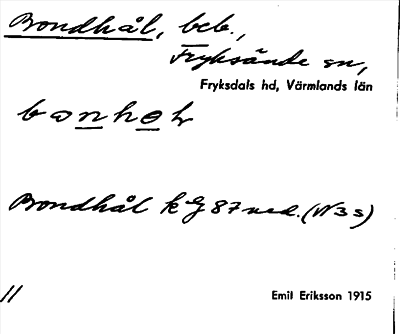 Brondhål, beb.,
Fryksände sn,
Fryksdals hd, Värmlands län
Brondhål kg 87 ned. (N3s)
11
Emil Eriksson 1915